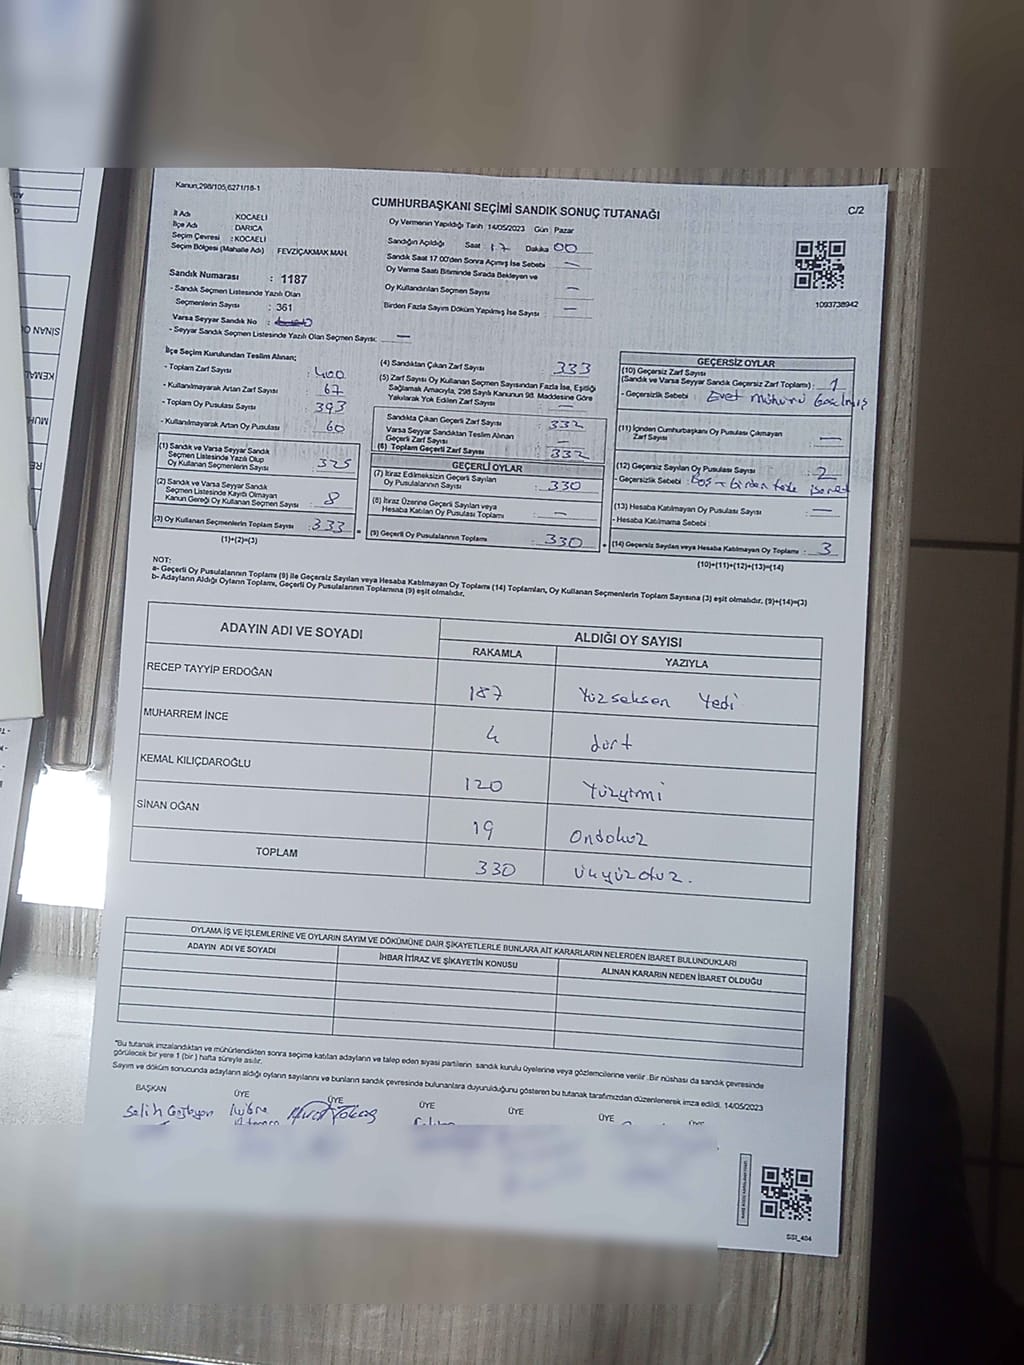 Kanun,298/105,6271/18-1
CUMHURBAŞKANI SEÇİMİ SANDIK SONUÇ TUTANAĞI
C/2
İl Adı KOCAELİ
İlçe Adı DARICA
Seçim Çevresi : KOCAELİ
Seçim Bölgesi (Mahalle Adı) FEVZİÇAKMAK MAH.
Sandık Numarası : 1187
- Sandık Seçmen Listesinde Yazılı Olan
Seçmenlerin Sayısı : 361
Varsa Seyyar Sandık No :
- Seyyar Sandık Seçmen Listesinde Yazılı Olan Seçmen Sayısı: —
Oy Vermenin Yapıldığı Tarih 14/05/2023 Gün Pazar
Sandığın Açıldığı Saat 17 Dakika 00
Sandık Saat 17:00'den Sonra Açımış İse Sebebi —
Oy Verme Saati Bitiminde Sırada Bekleyen ve
Oy Kullandırılan Seçmen Sayısı —
Birden Fazla Sayım Döküm Yapılmış İse Sayısı : —
1093738942
İlçe Seçim Kurulundan Teslim Alınan;
- Toplam Zarf Sayısı : 400
- Kullanılmayarak Artan Zarf Sayısı : 67
- Toplam Oy Pusulası Sayısı : 393
- Kullanılmayarak Artan Oy Pusulası : 60
(1) Sandık ve Varsa Seyyar Sandık
Seçmen Listesinde Yazılı Olup
Oy Kullanan Seçmenlerin Sayısı : 325
(2) Sandık ve Varsa Seyyar Sandık
Seçmen Listesinde Kayıtlı Olmayan
Kanun Gereği Oy Kullanan Seçmen Sayısı : 8
(3) Oy Kullanan Seçmenlerin Toplam Sayısı : 333
(1)+(2)=(3)
(4) Sandıktan Çıkan Zarf Sayısı : 333
(5) Zarf Sayısı Oy Kullanan Seçmen Sayısından Fazla İse, Eşitliği
Sağlamak Amacıyla, 298 Sayılı Kanunun 98. Maddesine Göre
Yakılarak Yok Edilen Zarf Sayısı : —
Sandıkta Çıkan Geçerli Zarf Sayısı : 332
Varsa Seyyar Sandıktan Teslim Alınan
Geçerli Zarf Sayısı : —
(6) Toplam Geçerli Zarf Sayısı : 332
GEÇERLİ OYLAR
(7) İtiraz Edilmeksizin Geçerli Sayılan
Oy Pusulalarının Sayısı : 330
(8) İtiraz Üzerine Geçerli Sayılan veya
Hesaba Katılan Oy Pusulası Toplamı : —
(9) Geçerli Oy Pusulalarının Toplamı : 330
GEÇERSİZ OYLAR
(10) Geçersiz Zarf Sayısı
(Sandık ve Varsa Seyyar Sandık Geçersiz Zarf Toplamı) : 1
- Geçersizlik Sebebi : Evet Mühürü
(11) İçinden Cumhurbaşkanı Oy Pusulası Çıkmayan
Zarf Sayısı : —
(12) Geçersiz Sayılan Oy Pusulası Sayısı : 2
- Geçersizlik Sebebi : Boş - birden fazla işaret
(13) Hesaba Katılmayan Oy Pusulası Sayısı : —
- Hesaba Katılmama Sebebi :
(14) Geçersiz Sayılan veya Hesaba Katılmayan Oy Toplamı : 3
(10)+(11)+(12)+(13)=(14)
NOT:
a- Geçerli Oy Pusulalarının Toplamı (9) ile Geçersiz Sayılan veya Hesaba Katılmayan Oy Toplamı (14) Toplamları, Oy Kullanan Seçmenlerin Toplam Sayısına (3) eşit olmalıdır. (9)+(14)=(3)
b- Adayların Aldığı Oyların Toplamı, Geçerli Oy Pusulalarının Toplamına (9) eşit olmalıdır.
ADAYIN ADI VE SOYADI ALDIĞI OY SAYISI
RAKAMLA YAZIYLA
RECEP TAYYİP ERDOĞAN 187 Yüzseksen Yedi
MUHARREM İNCE 4 dört
KEMAL KILIÇDAROĞLU 120 Yüzyirmi
SİNAN OĞAN 19 Ondokuz
TOPLAM 330 üçyüzotuz.
OYLAMA İŞ VE İŞLEMLERİNE VE OYLARIN SAYIM VE DÖKÜMÜNE DAİR ŞİKAYETLERLE BUNLARA AİT KARARLARIN NELERDEN İBARET BULUNDUKLARI
ADAYIN ADI VE SOYADI İHBAR İTİRAZ VE ŞİKAYETİN KONUSU ALINAN KARARIN NEDEN İBARET OLDUĞU
"Bu tutanak imzalandıktan ve mühürlendikten sonra seçime katılan adayların ve talep eden siyasi partilerin sandık kurulu üyelerine veya gözlemcilerine verilir. Bir nüshası da sandık çevresinde
görülecek bir yere 1 (bir) hafta süreyle asılır.
Sayım ve döküm sonucunda adayların aldığı oyların sayılarını ve bunların sandık çevresinde bulunanlara duyurulduğunu gösteren bu tutanak tarafımızdan düzenlenerek imza edildi. 14/05/2023
BAŞKAN ÜYE ÜYE ÜYE ÜYE ÜYE
Salih
SSI_404
SİNAN
KEMAL
MUH